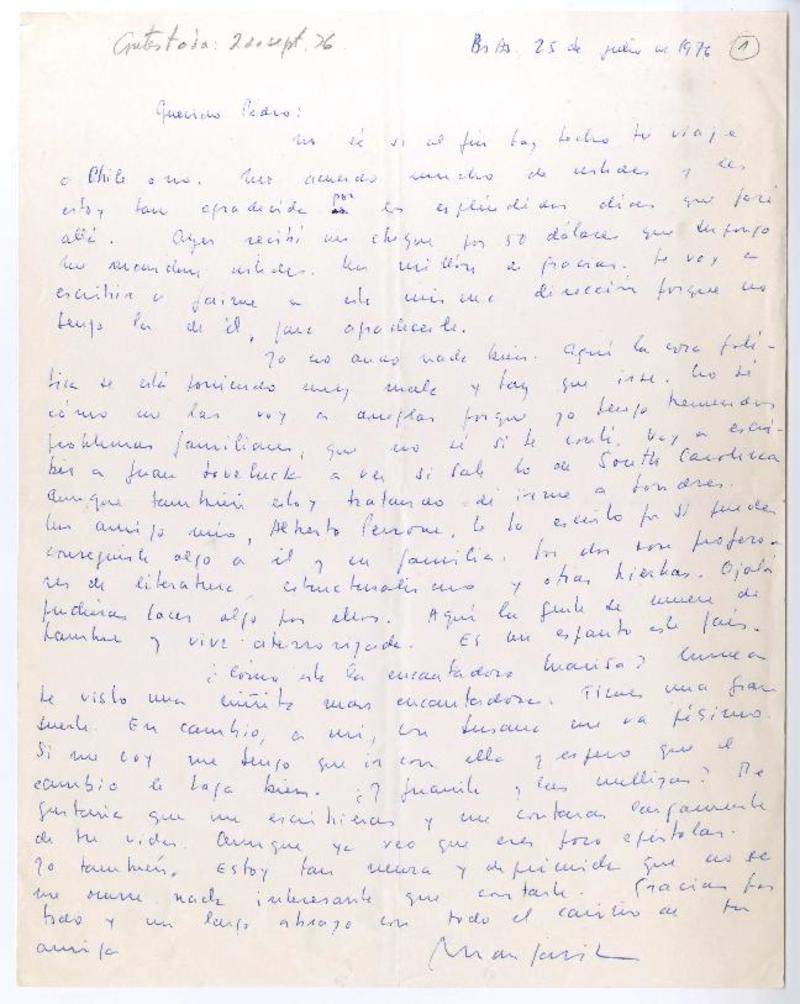 Contestada: 20 sept. 76
Bs As. 25 de julio de 1976 1
Querido Pedro:
no sé si al fin has hecho tu viaje
a Chile o no. Me acuerdo mucho de ustedes y les
estoy tan agradecida por los espléndidos días que pasé
allá. Ayer recibí un cheque por 50 dólares que supongo
me mandan ustedes. Un millón de gracias. Le voy a
escribir a Jaime a esta misma dirección porque no
tengo la de él, para agradecerle.
Yo no ando nada bien. Aquí la cosa polí-
tica se está poniendo muy mala y hay que irse. No sé
cómo me las voy a arreglar porque yo tengo tremendos
problemas familiares, que no sé si te conté. Voy a escri-
bir a Juan Loveluck a ver si sale lo de South Carolina
aunque también estoy tratando de irme a Londres.
Un amigo mío, Alberto Perrone, te ha escrito por si puedes
conseguirle algo a él y su familia. Los dos son profeso-
res de literatura, estructuralismo y otras hierbas. Ojalá
pudieras hacer algo por ellos. Aquí la gente se muere de
hambre y vive aterrorizada. Es un espanto este país.
¿Cómo está la encantadora Marisa? Nunca
he visto una niñita más encantadora. Tienes una gran
suerte. En cambio, a mí, con Susana me va pésimo.
Si me voy me tengo que ir con ella y espero que el
cambio le haga bien. ¿Y Juanito y las mellizas? Me
gustaría que me escribieras y me contaras largamente
de tu vida. Aunque ya veo que eres poco epistolar.
Yo también. Estoy tan neura y deprimida que no se
me ocurre nada interesante que contarte. Gracias por
todo y un largo abrazo con todo el cariño de tu
amiga